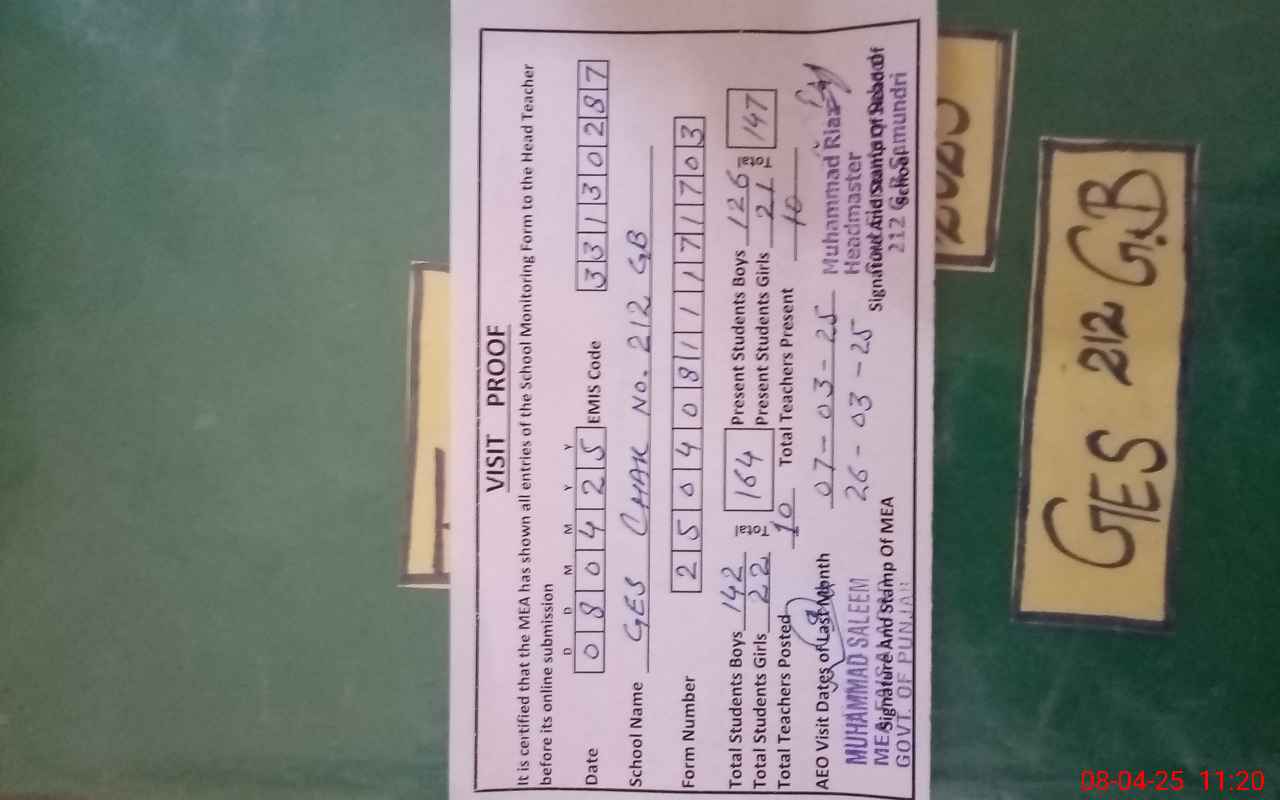 VISIT PROOF
It is certified that the MEA has shown all entries of the School Monitoring Form to the Head Teacher
before its online submission
D D M M Y Y
Date 0 8 0 4 2 5 EMIS Code 3 3 1 3 0 2 8 7
School Name GES CHAK No. 212 GB
Form Number 2 5 0 4 0 8 1 1 1 7 1 7 0 3
Total Students Boys 142 Total 164 Present Students Boys 126 Total 147
Total Students Girls 22 Present Students Girls 21
Total Teachers Posted 10 Total Teachers Present 10
AEO Visit Dates of Last Month 07-03-25
26-03-25
MUHAMMAD SALEEM
MEA FAISALABAD
GOVT. OF PUNJAB
Signature And Stamp Of MEA
Muhammad Riaz
Headmaster
Signature And Stamp Of Head Of
School
212 G.B Samundri
GES 212 G.B
08-04-25 11:20